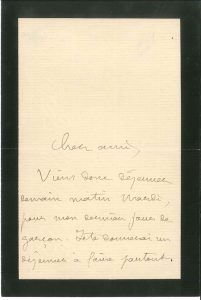 Cher ami,
Viens donc déjeuner
demain matin Mardi,
pour mon dernier jour de
garçon. Je te donnerai un
déjeuner à faire